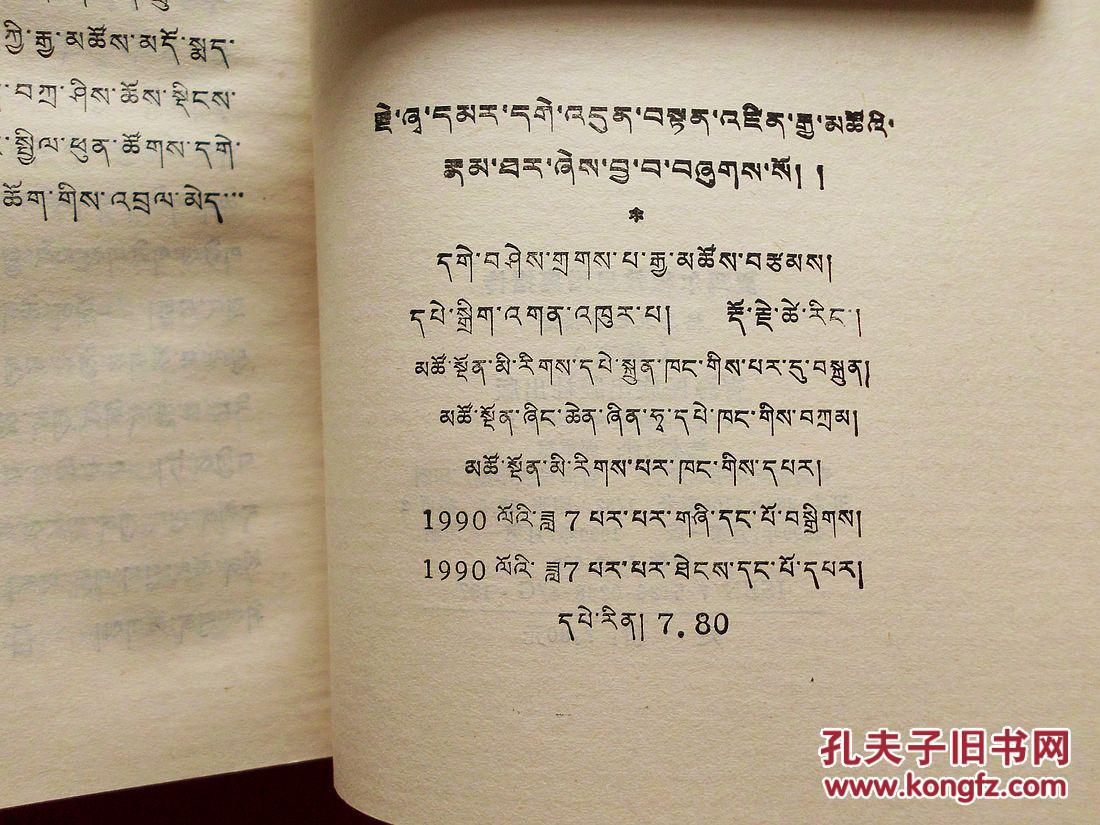 ཀྱི་རྒྱ་མཚོས་མདོ་སྨད་
བཀྲ་ཤིས་ཆོས་སྡིངས་
སྤྱིལ་ཕུན་ཚོགས་དགེ་
ཚོག་གིས་འབྲལ་མེད་…
རྗེ་ཞྭ་དམར་དགེ་འདུན་བསྟན་འཛིན་རྒྱ་མཚོའི་
རྣམ་ཐར་ཞེས་བྱ་བ་བཞུགས་སོ། །
*
དགེ་བཤེས་གྲགས་པ་རྒྱ་མཚོས་བརྩམས།
དཔེ་སྒྲིག་འགན་འཁུར་པ། རྡོ་རྗེ་ཚེ་རིང་།
མཚོ་སྔོན་མི་རིགས་དཔེ་སྐྲུན་ཁང་གིས་པར་དུ་བསྐྲུན།
མཚོ་སྔོན་ཞིང་ཆེན་ཞིན་ཧྭ་དཔེ་ཁང་གིས་བཀྲམ།
མཚོ་སྔོན་མི་རིགས་པར་ཁང་གིས་དཔར།
1990 ལོའི་ཟླ 7 པར་པར་གཞི་དང་པོ་བསྒྲིགས།
1990 ལོའི་ ཟླ7 པར་པར་ཐེངས་དང་པོ་དཔར།
དཔེ་རིན། 7.80
孔夫子旧书网
www.kongfz.com